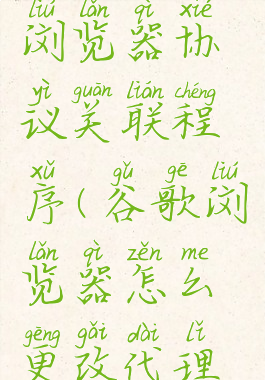 liú lǎn qì xié
浏览器协
yì guān lián chéng
议关联程
xǔ gǔ gē liú
序(谷歌浏
lǎn qì zěn me
览器怎么
gēng gǎi dài lǐ
更改代理